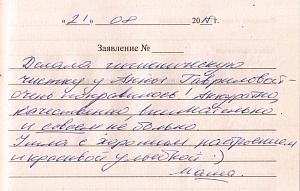 «21» 08 20
Заявление №
Делала гигиеническую
чистку у Анны Гавриловой -
очень понравилось! Аккуратно,
качественно, внимательно
и совсем не больно.
Ушла с хорошим настроением
и красивой улыбкой :)
Маша.